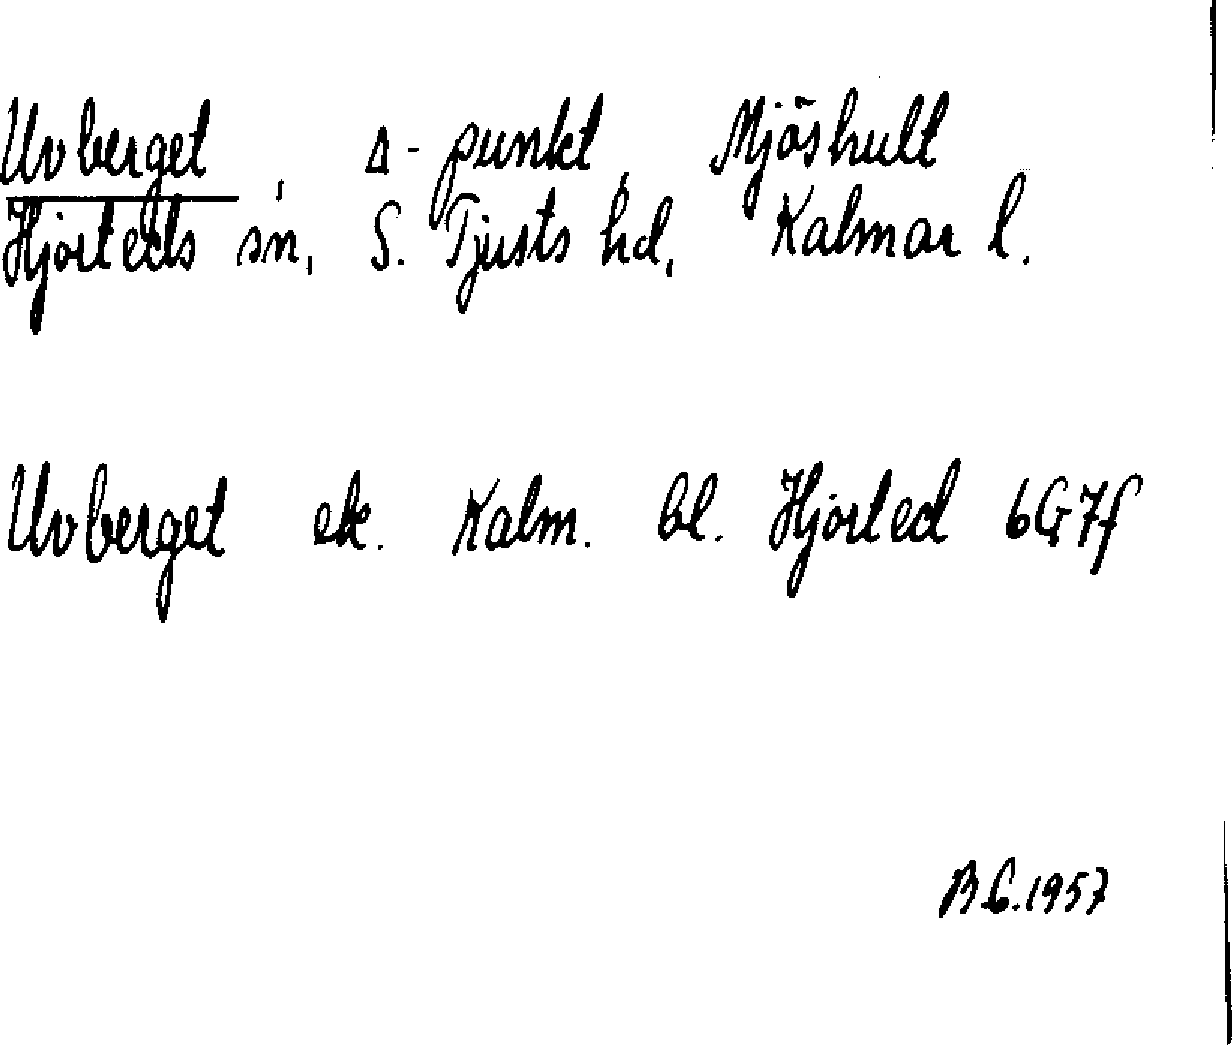 Uvberget, Δ-punkt, Mjöshult
Hjorteds sn, S. Tjusts hd, Kalmar l.
Uvberget ek. Kalm. bl. Hjorted 6G7f
B.G.1957